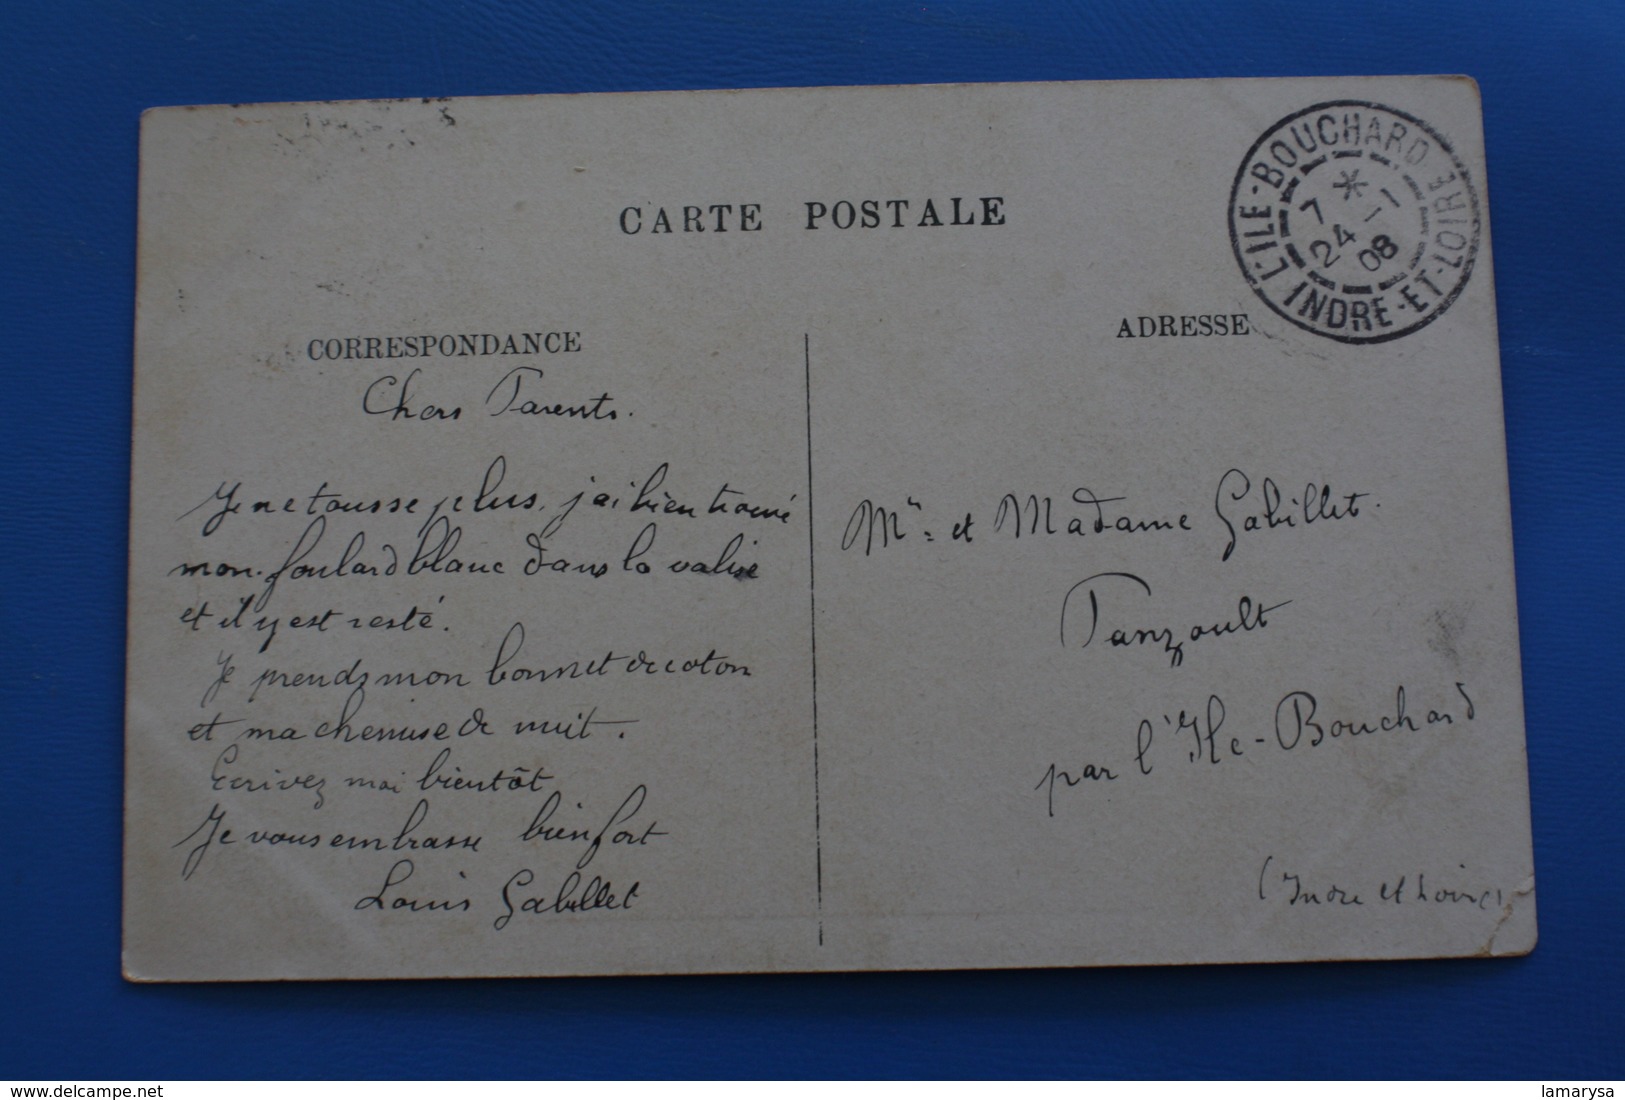 CARTE POSTALE
L'ILE-BOUCHARD
INDRE-ET-LOIRE
7 * 24 -1 08
CORRESPONDANCE
Chers Parents.
Je ne tousse plus, j'ai bien trouvé
mon foulard blanc dans la valise
et il y est resté.
Je prends mon bonnet de coton
et ma chemise de nuit.
Ecrivez moi bientôt
Je vous embrasse bien fort
Louis Gabillet
ADRESSE
Mr et Madame Gabillet.
Panzoult
par l'Ile-Bouchard
(Indre et Loire)
delcampe.net
lamarysa